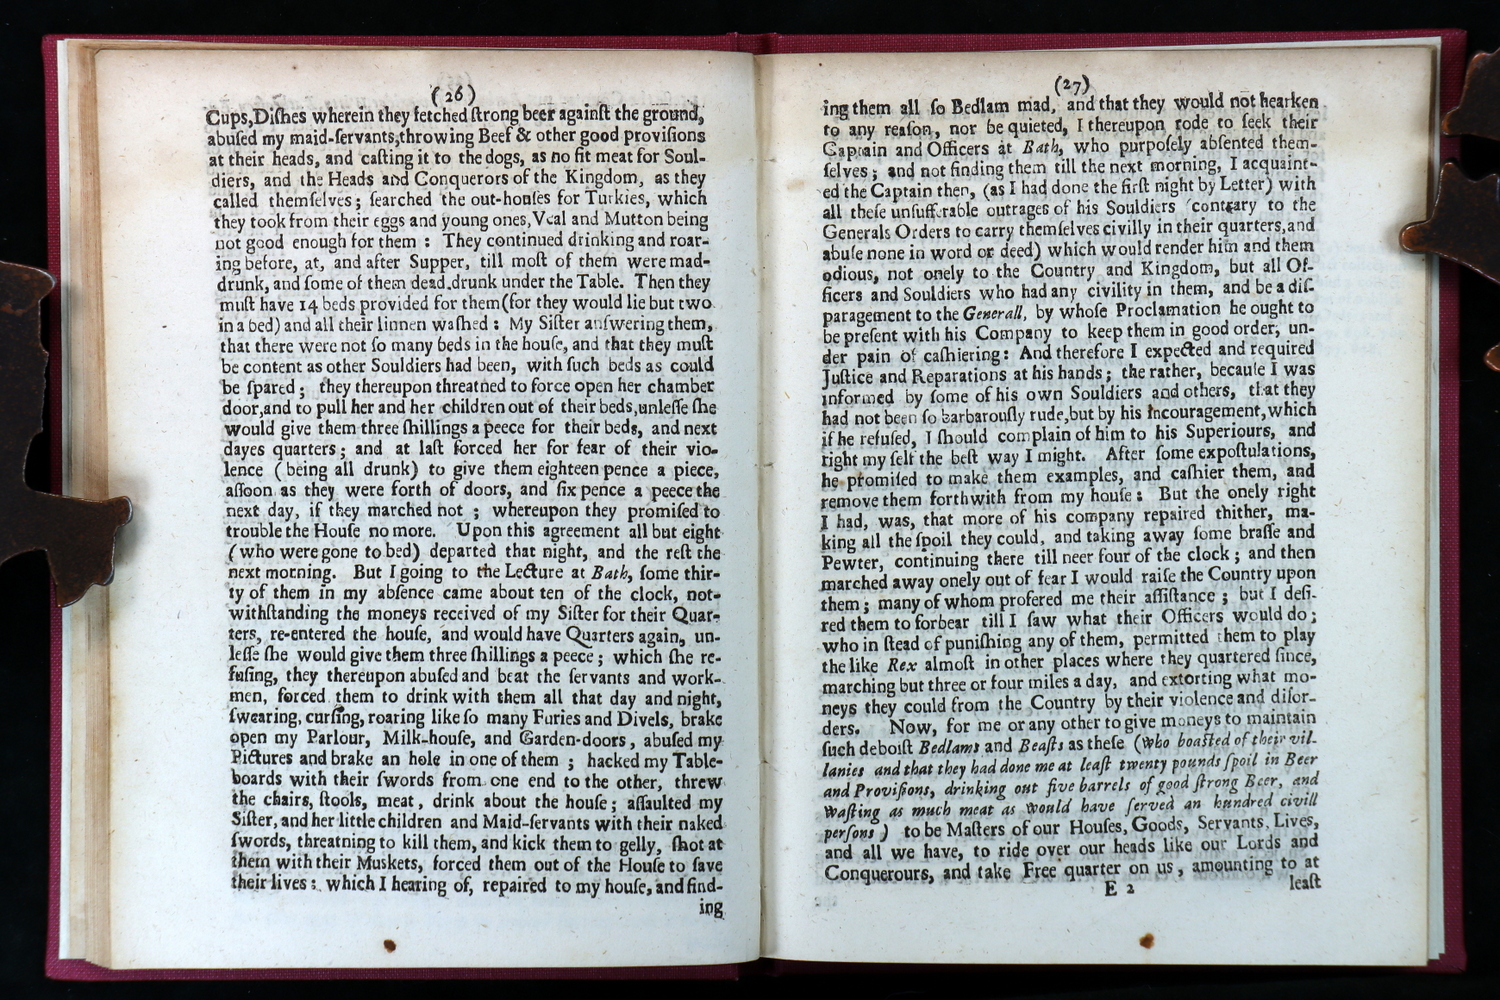 (26)
Cups,Diſhes wherein they fetched ſtrong beer againſt the ground,
abuſed my maid-ſervants,throwing Beef & other good proviſions
at their heads, and caſting it to the dogs, as no fit meat for Soul-
diers, and the Heads and Conquerors of the Kingdom, as they
called themſelves; ſearched the out-houſes for Turkies, which
they took from their eggs and young ones,Veal and Mutton being
not good enough for them : They continued drinking and roar-
ing before, at, and after Supper, till moſt of them were mad-
drunk, and ſome of them dead drunk under the Table. Then they
muſt have 14 beds provided for them(for they would lie but two
in a bed) and all their linnen waſhed : My Siſter anſwering them,
that there were not ſo many beds in the houſe, and that they muſt
be content as other Souldiers had been, with ſuch beds as could
be ſpared; they thereupon threatned to force open her chamber
door,and to pull her and her children out of their beds,unleſſe ſhe
would give them three ſhillings a peece for their beds, and next
dayes quarters; and at laſt forced her for fear of their vio-
lence (being all drunk) to give them eighteen pence a piece,
aſſoon as they were forth of doors, and ſix pence a peece the
next day, if they marched not ; whereupon they promiſed to
trouble the Houſe no more. Upon this agreement all but eight
(who were gone to bed) departed that night, and the reſt the
next morning. But I going to the Lecture at Bath, ſome thir-
ty of them in my abſence came about ten of the clock, not-
withſtanding the moneys received of my Siſter for their Quar-
ters, re-entered the houſe, and would have Quarters again, un-
leſſe ſhe would give them three ſhillings a peece; which ſhe re-
fuſing, they thereupon abuſed and beat the ſervants and work-
men, forced them to drink with them all that day and night,
ſwearing, curſing, roaring like ſo many Furies and Divels, brake
open my Parlour, Milk-houſe, and Garden-doors, abuſed my
Pictures and brake an hole in one of them ; hacked my Table-
boards with their ſwords from one end to the other, threw
the chairs, ſtools, meat, drink about the houſe; aſſaulted my
Siſter, and her little children and Maid-ſervants with their naked
ſwords, threatning to kill them, and kick them to gelly, ſhot at
them with their Muskets, forced them out of the Houſe to ſave
their lives : which I hearing of, repaired to my houſe, and find-
ing
(27)
ing them all ſo Bedlam mad, and that they would not hearken
to any reaſon, nor be quieted, I thereupon rode to ſeek their
Captain and Officers at Bath, who purpoſely abſented them-
ſelves; and not finding them till the next morning, I acquaint-
ed the Captain then, (as I had done the firſt night by Letter) with
all theſe unſufferable outrages of his Souldiers (contrary to the
Generals Orders to carry themſelves civilly in their quarters,and
abuſe none in word or deed) which would render him and them
odious, not onely to the Country and Kingdom, but all Of-
ficers and Souldiers who had any civility in them, and be a diſ-
paragement to the Generall, by whoſe Proclamation he ought to
be preſent with his Company to keep them in good order, un-
der pain of caſhiering: And therefore I expected and required
Juſtice and Reparations at his hands; the rather, becauſe I was
informed by ſome of his own Souldiers and others, that they
had not been ſo barbarouſly rude,but by his Incouragement,which
if he refuſed, I ſhould complain of him to his Superiours, and
right my ſelf the beſt way I might. After ſome expoſtulations,
he promiſed to make them examples, and caſhier them, and
remove them forthwith from my houſe: But the onely right
I had, was, that more of his company repaired thither, ma-
king all the ſpoil they could, and taking away ſome braſſe and
Pewter, continuing there till neer four of the clock; and then
marched away onely out of fear I would raiſe the Country upon
them; many of whom profered me their aſſiſtance ; but I deſi-
red them to forbear till I ſaw what their Officers would do;
who in ſtead of puniſhing any of them, permitted them to play
the like Rex almoſt in other places where they quartered ſince,
marching but three or four miles a day, and extorting what mo-
neys they could from the Country by their violence and diſor-
ders. Now, for me or any other to give moneys to maintain
ſuch deboiſt Bedlams and Beaſts as theſe (who boaſted of their vil-
lanies and that they had done me at leaſt twenty pounds ſpoil in Beer
and Proviſions, drinking out five barrels of good ſtrong Beer, and
waſting as much meat as would have ſerved an hundred civill
perſons) to be Maſters of our Houſes, Goods, Servants, Lives,
and all we have, to ride over our heads like our Lords and
Conquerours, and take Free quarter on us, amounting to at
E 2 leaſt